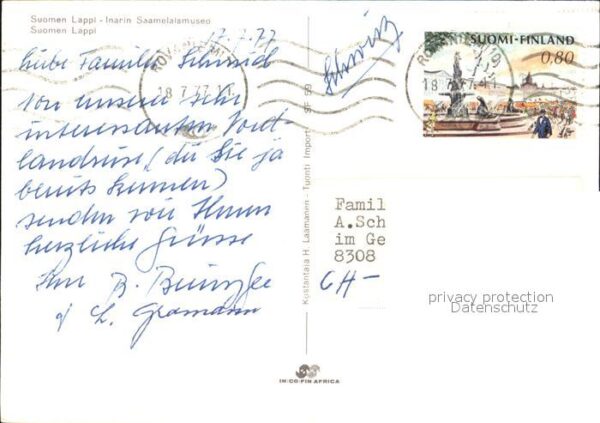 Suomen Lappi - Inarin Saamelaismuseo
Suomen Lappi
17.7.77
Liebe Familie Schmid
Von unserer sehr
interessanten Nord
landreise, (die Sie ja
bereits kennen)
senden wir Ihnen
herzliche Grüsse
B.
L. Gramann
ROVANIEMI
18.7.77
Schweiz
SUOMI-FINLAND
0,80
18.7.77
Kustantaja H. Laamanen - Tuonti Import
Famil
A.Sch
im Ge
8308
CH-
privacy protection
Datenschutz
IN-CO-FIN AFRICA